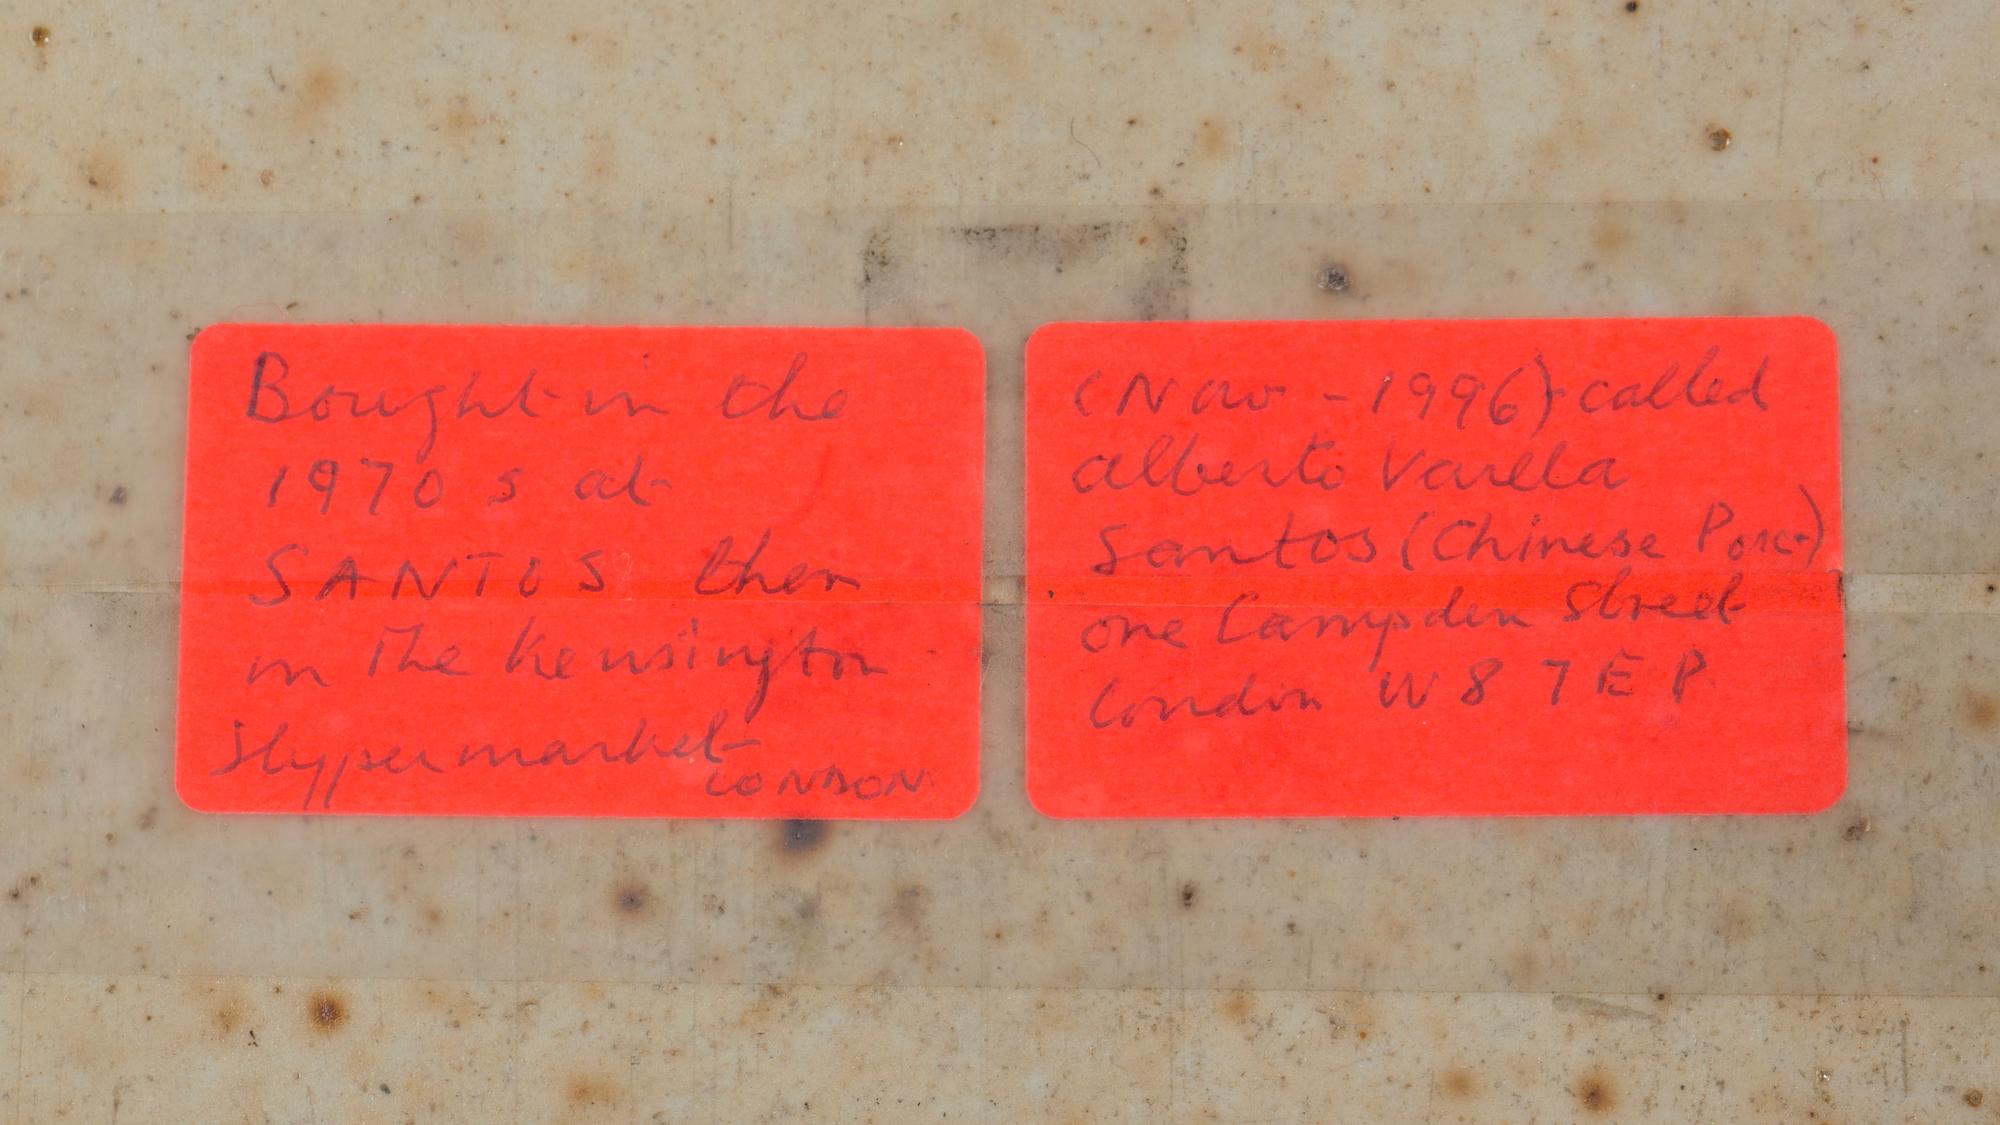 Bought in the
1970s at
SANTOS then
in The Kensington
Hypermarket
LONDON
(Now - 1996) called
alberto Varela
Santos (Chinese Porc.)
one Campden Street
London W8 7EP